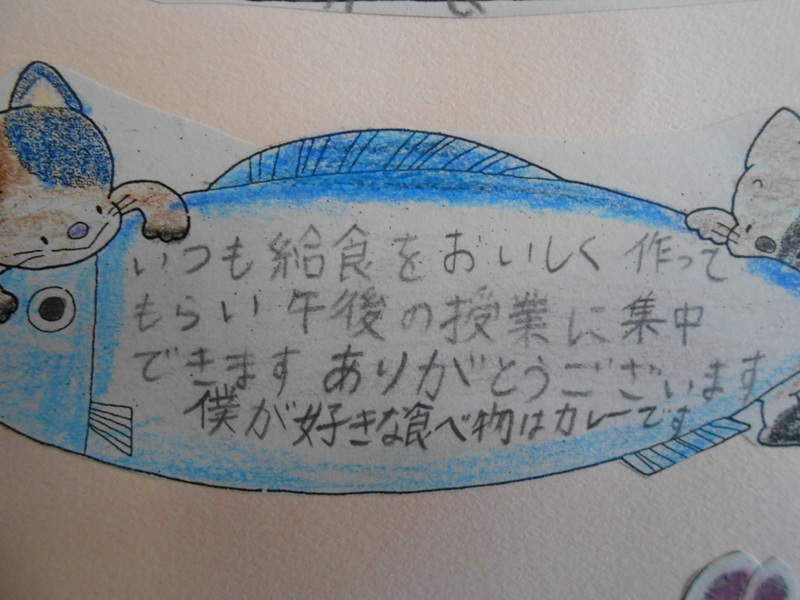 いつも給食をおいしく作って
もらい午後の授業に集中
できますありがとうございます
僕が好きな食べ物はカレーです